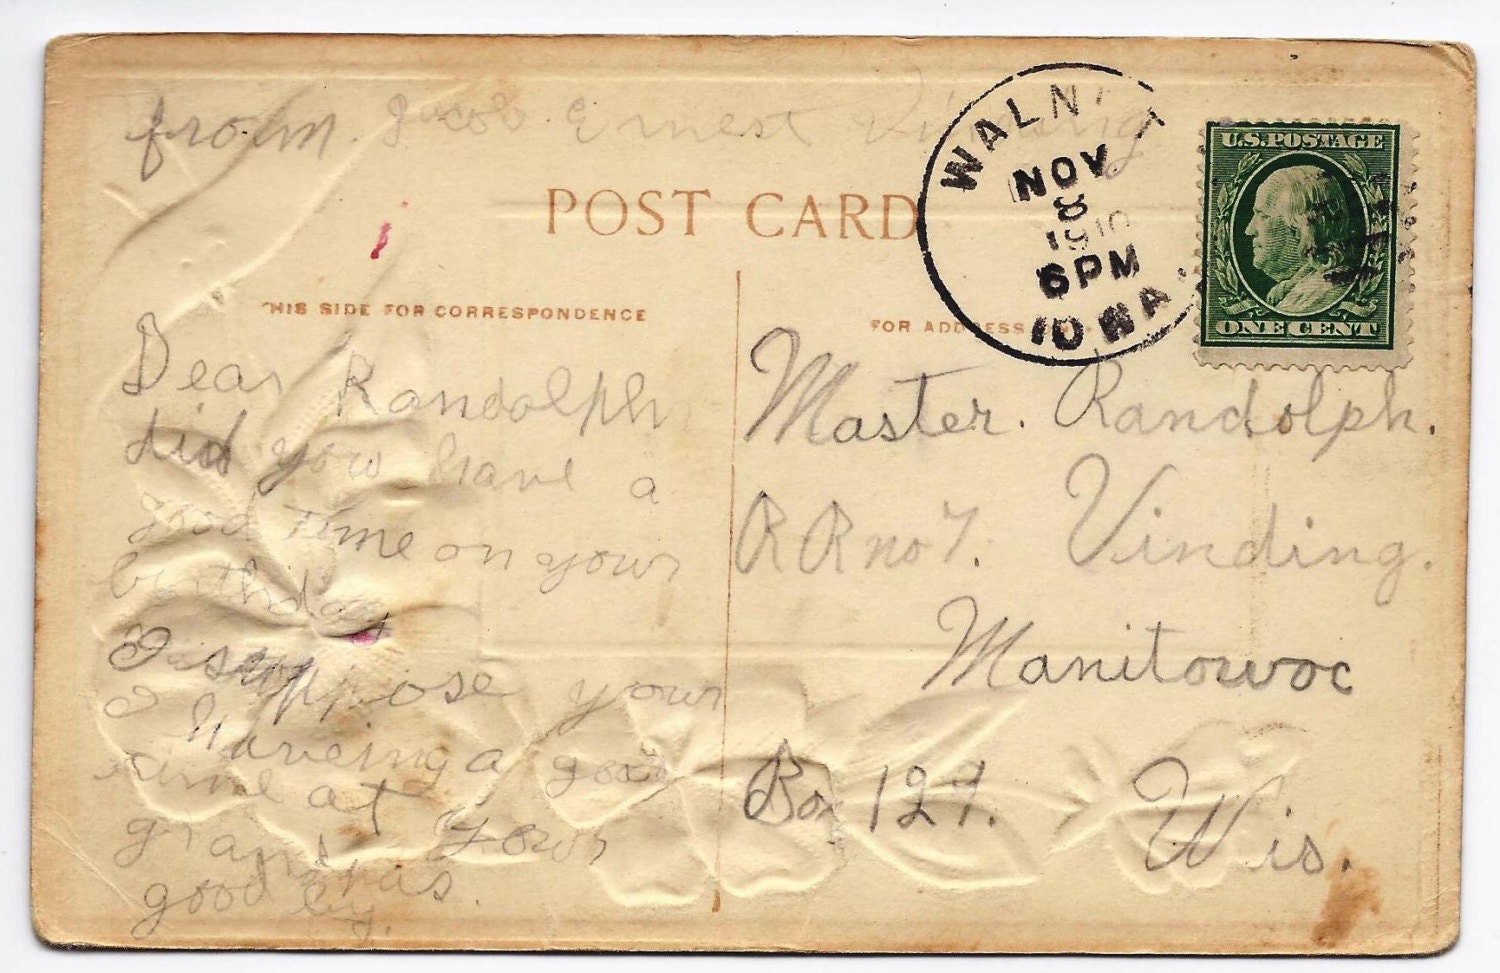 from. Jacob. Ernest Vinding
POST CARD
WALN T
NOV
8
1910
6 PM
IOWA.
U.S. POSTAGE
ONE CENT
THIS SIDE FOR CORRESPONDENCE
FOR ADDRESS
Dear Randolph
did your have a
good time on your
birthday
I suppose your
haveing a good
time at your
grandpas.
good by.
Master. Randolph.
R R no 7. Vinding.
Manitowoc
Box 127. Wis.